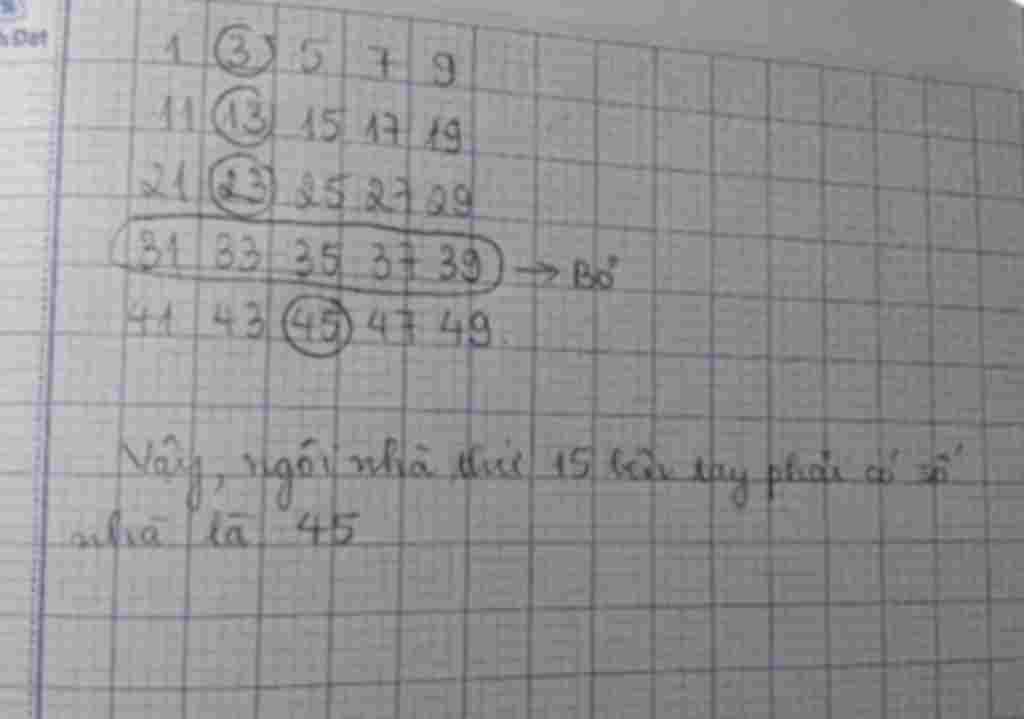 1 3 5 7 9
11 13 15 17 19
21 23 25 27 29
31 33 35 37 39 → Bỏ
41 43 45 47 49
Vậy, ngôi nhà thứ 15 bên tay phải có số
nhà là 45